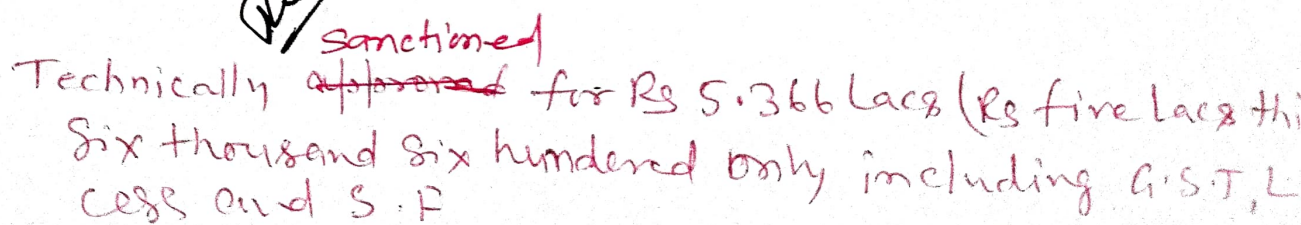 sanctioned
Technically approved for Rs 5.366 Lacs (Rs five Lacs thi
Six thousand Six hundered only including G.S.T, L
cess and S.F